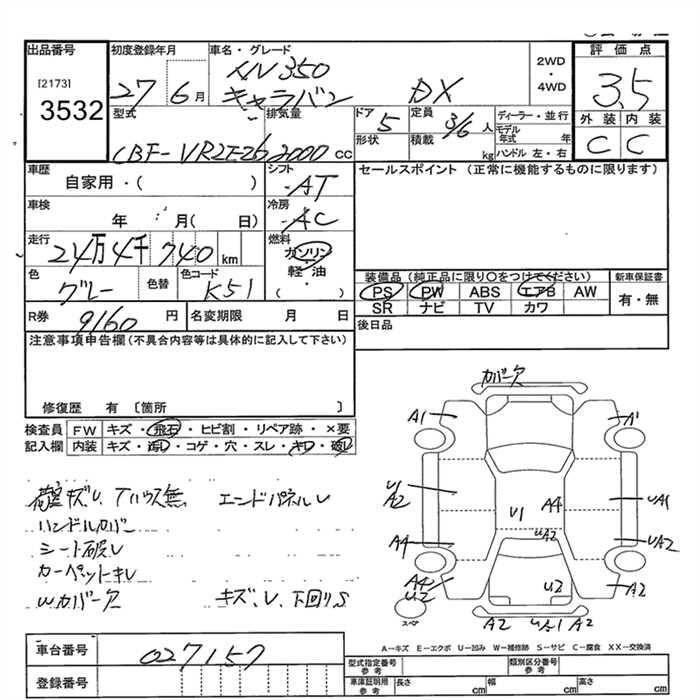 出品番号
[2173]
3532
初度登録年月
27 6月
車名・グレード
NV350
キャラバン DX
2WD
・
4WD
評価点
3.5
外装 内装
C C
型式
CBF-VR2E26
排気量
2000 cc
ドア
5
形状
定員
3/6 人
積載
kg
ディーラー・並行
モデル年式 年
ハンドル 左・右
車歴
自家用・( )
シフト
AT
車検
年 月( 日)
冷房
AC
走行
24万4千740km
燃料
ガソリン
軽・油
( )
色
グレー
色替
色コード
K51
R券 9160 円
名変期限 月 日
セールスポイント (正常に機能するものに限ります)
装備品 (純正品に限り○をつけてください)
PS PW ABS エアB AW
SR ナビ TV カワ
新車保証書
有・無
後日品
注意事項申告欄(不具合内容等は具体的に記入して下さい)
修復歴 有 〔箇所 〕
検査員
記入欄
FW キズ・飛石・ヒビ割・リペア跡・×要
内装 キズ・汚レ・コゲ・穴・スレ・キレ・破レ
荷室キズ、レ Tハウス無
エンドパネルレ
ハンドルカバー
シート破レ
カーペットキレ
Wカバー欠
キズ、レ、下回りS
カバー欠
A1
A1
U1
A2
A4
UA1
U1
UA2
A4
UA2
A4
U2
U2
A2
スペア
A2
UA1
A2
A-キズ E-エクボ U-凹み W-補修跡 S-サビ C-腐食 XX-交換済
車台番号
027157
登録番号
型式指定番号
参考
類別区分番号
参考
車庫証明用
参考
長さ cm
幅 cm
高さ cm